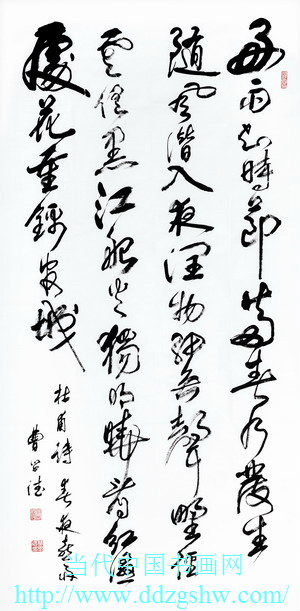 好雨知時節當春乃發生
隨風潛入夜潤物細無聲野徑
雲俱黑江船火獨明曉看紅濕
處花重錦官城
杜甫詩春夜喜雨
曹德
当代中国书画网
http://www.ddzgshw.com/